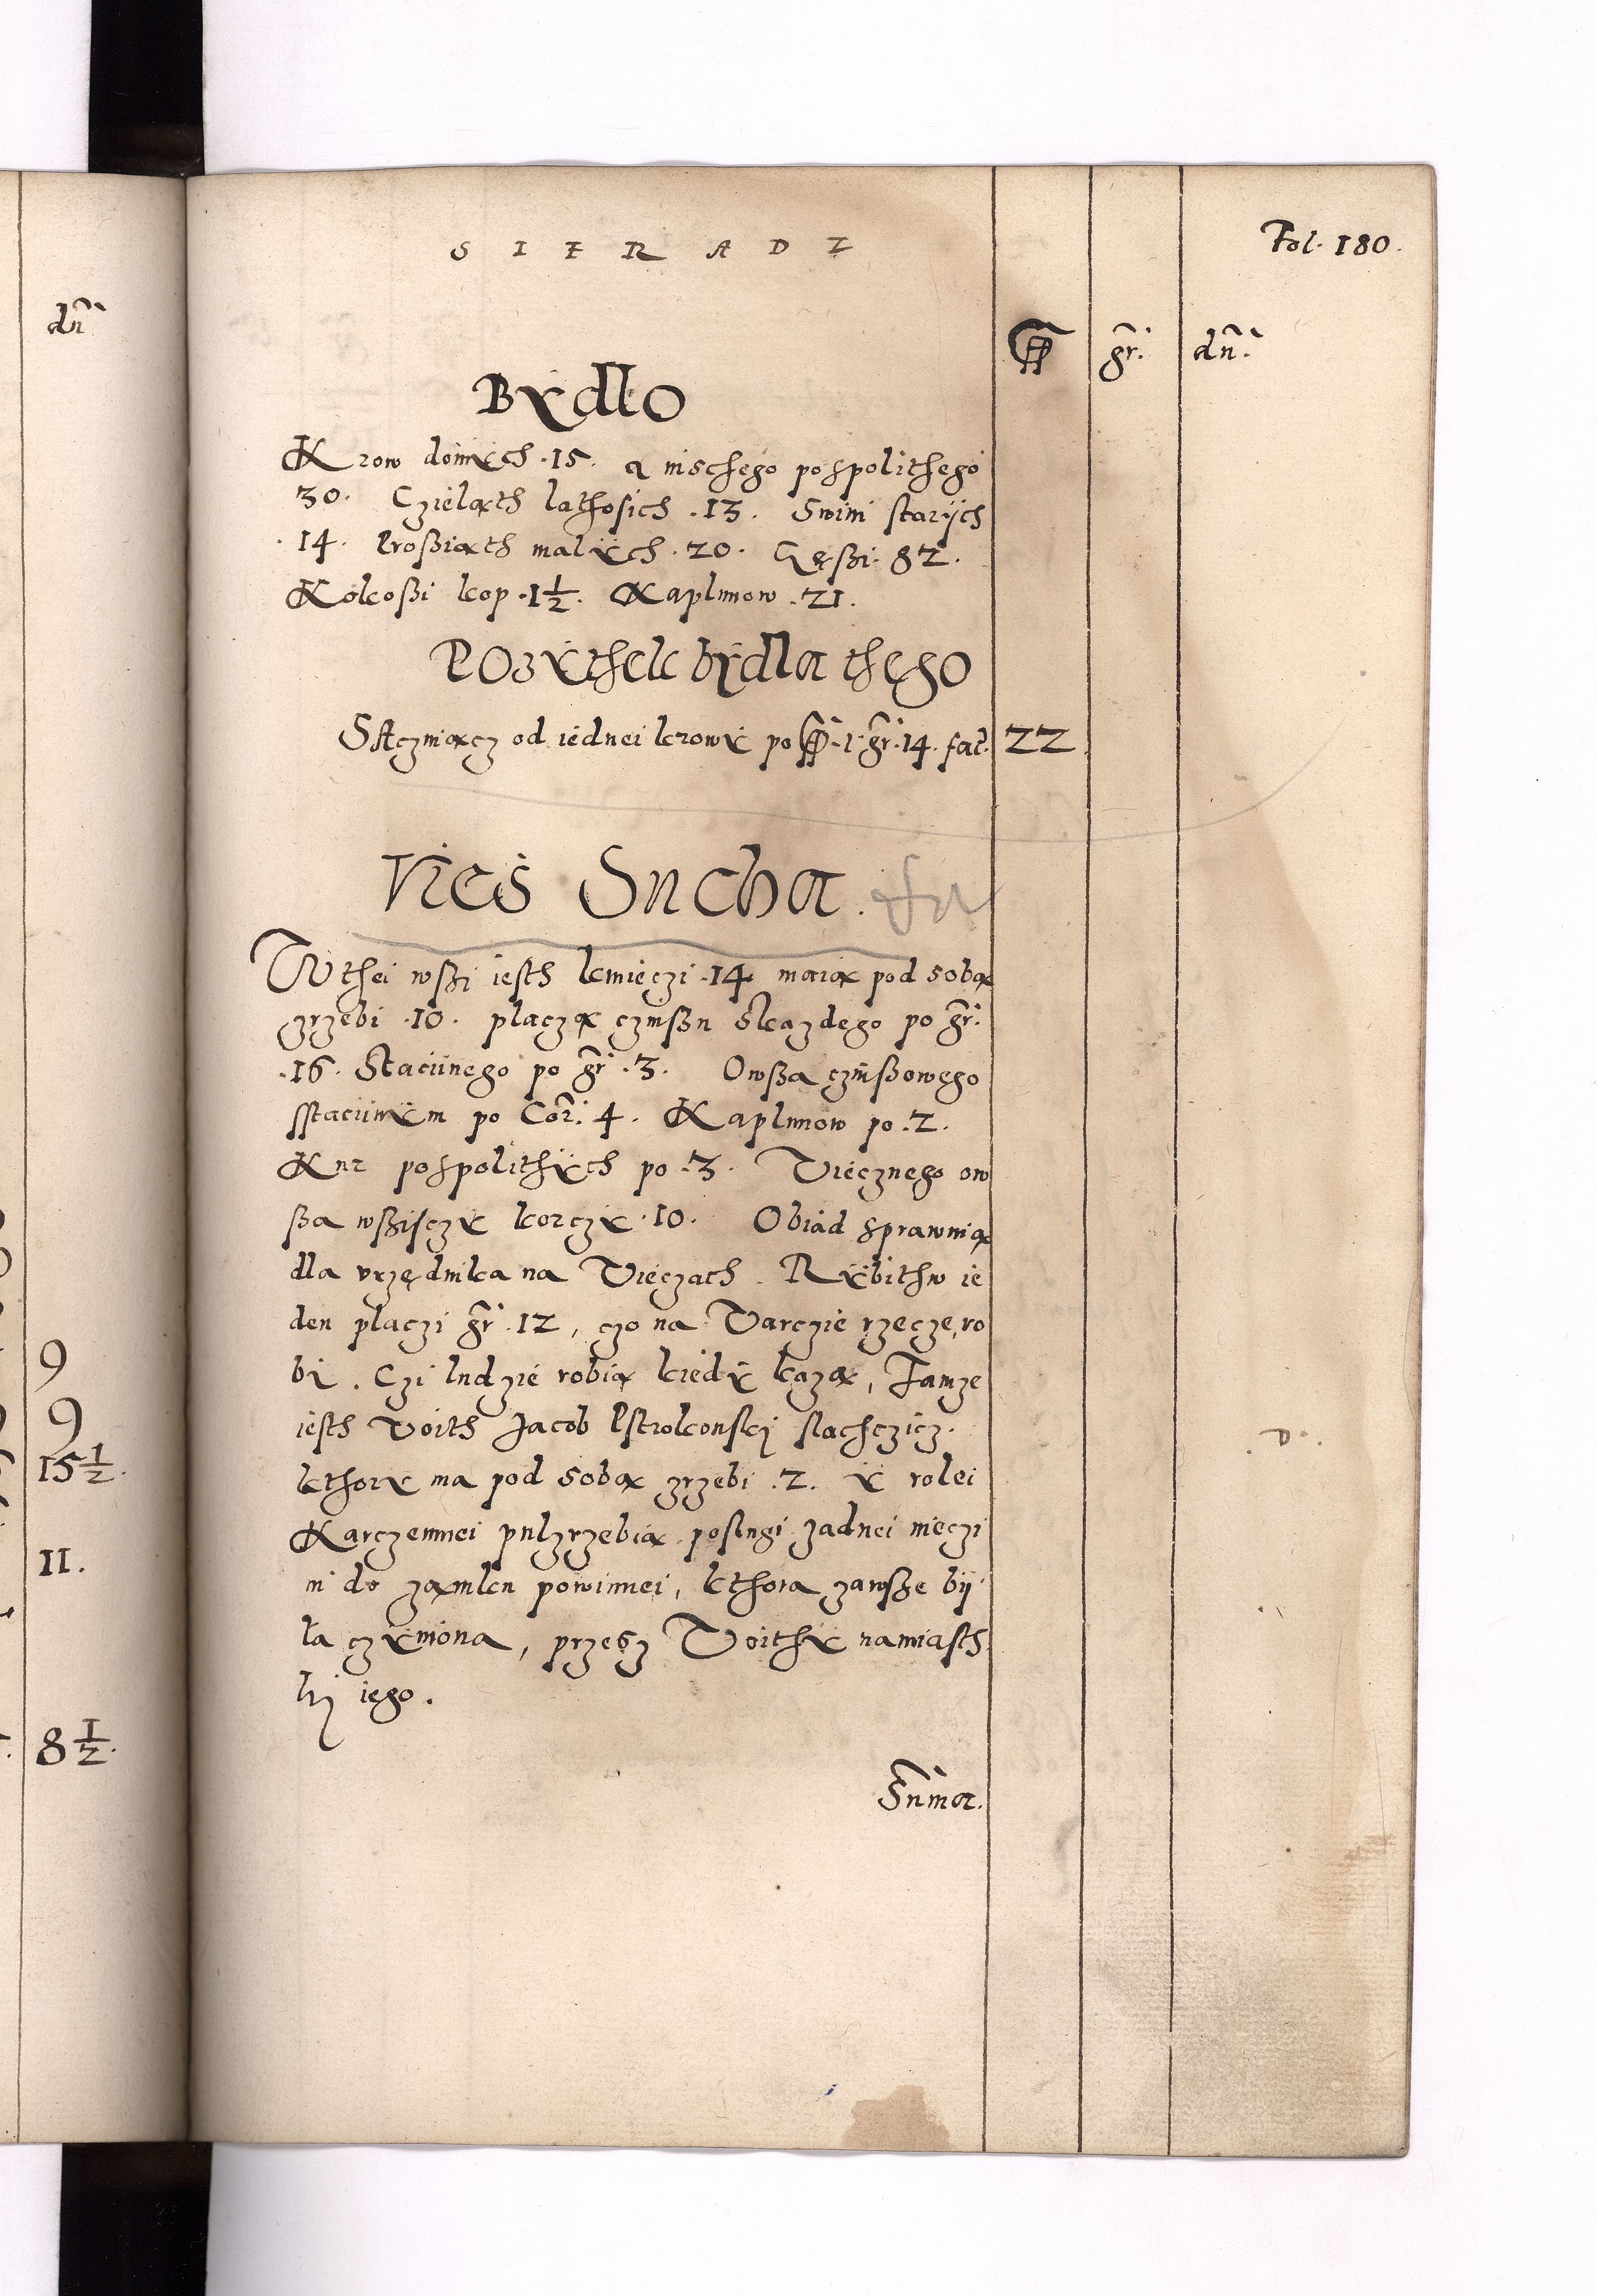 SIERADZ
Fol. 180.
fl. gr. dn̄.
Bÿdło
Krow doinÿch .15. a inschego pospolithego
30. Czieląth lathosich .13. Swini starÿch
.14. Prosziąth malÿch .20. Gęszi .82.
Kokoszi kop .1½. Kaplunow .21.
Pozÿthek bÿdla thego
SAczuiącz od iednei krowÿ po fl. 1. gr. 14. fac. 22
Vies Sucha.
W thei wszi iesth kmieczi .14. maią pod sobą
zrzebi .10. placzą czinszu skazdego po gr.
.16. Staciinego po gr .3. Owsza czinszowego
sstaciinÿm po Cor. 4. Kaplunow po .2.
Kur pospolithÿch po .3. Viecznego ow
sza wszisczÿ korczÿ .10. Obiad sprawuią
dla vrzędnika na Vieczach. Rÿbithw ie
den placzi gr .12, czo na Varczie rzecze ro
bi. Czi ludzie robią kiedÿ kazą, Tamze
iesth Voith Jacob Pstrokonskj slachczicz.
kthorÿ ma pod sobą zrzebi .2. ÿ rolei
Karczemnei pulzrzebia poslugi zadnei nieczi
ni do zamku powinnei, kthora zawsze bÿ
la czÿniona, przesz Voithÿ namiasth
kj iego.
Suma.
dn̄
9
9
15½.
11.
8½.